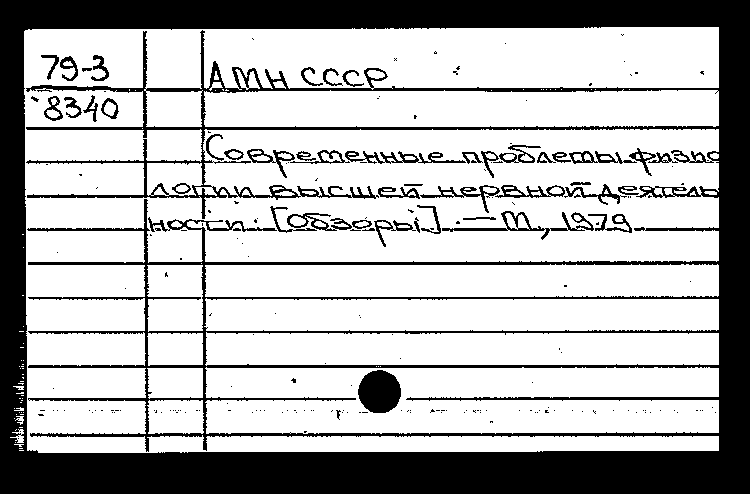 79-3
8340
АМН СССР.
Современные проблемы физио
логии высшей нервной деятель
ности. [Обзоры]. — М., 1979